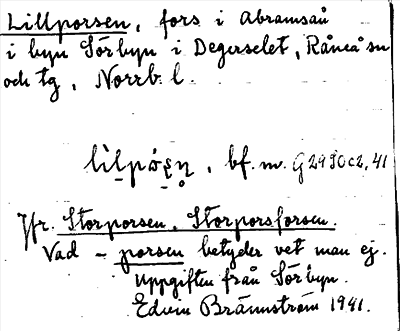 Lillporsen, fors i Abramsån
i byn Sörbyn i Degerselet, Råneå sn
och tg, Norrb. l.
bf. m.
Jfr. Storporsen, Storporsforsen.
Vad – porsen betyder vet man ej.
Uppgiften från Sörbyn.
Edvin Brännström 1941.